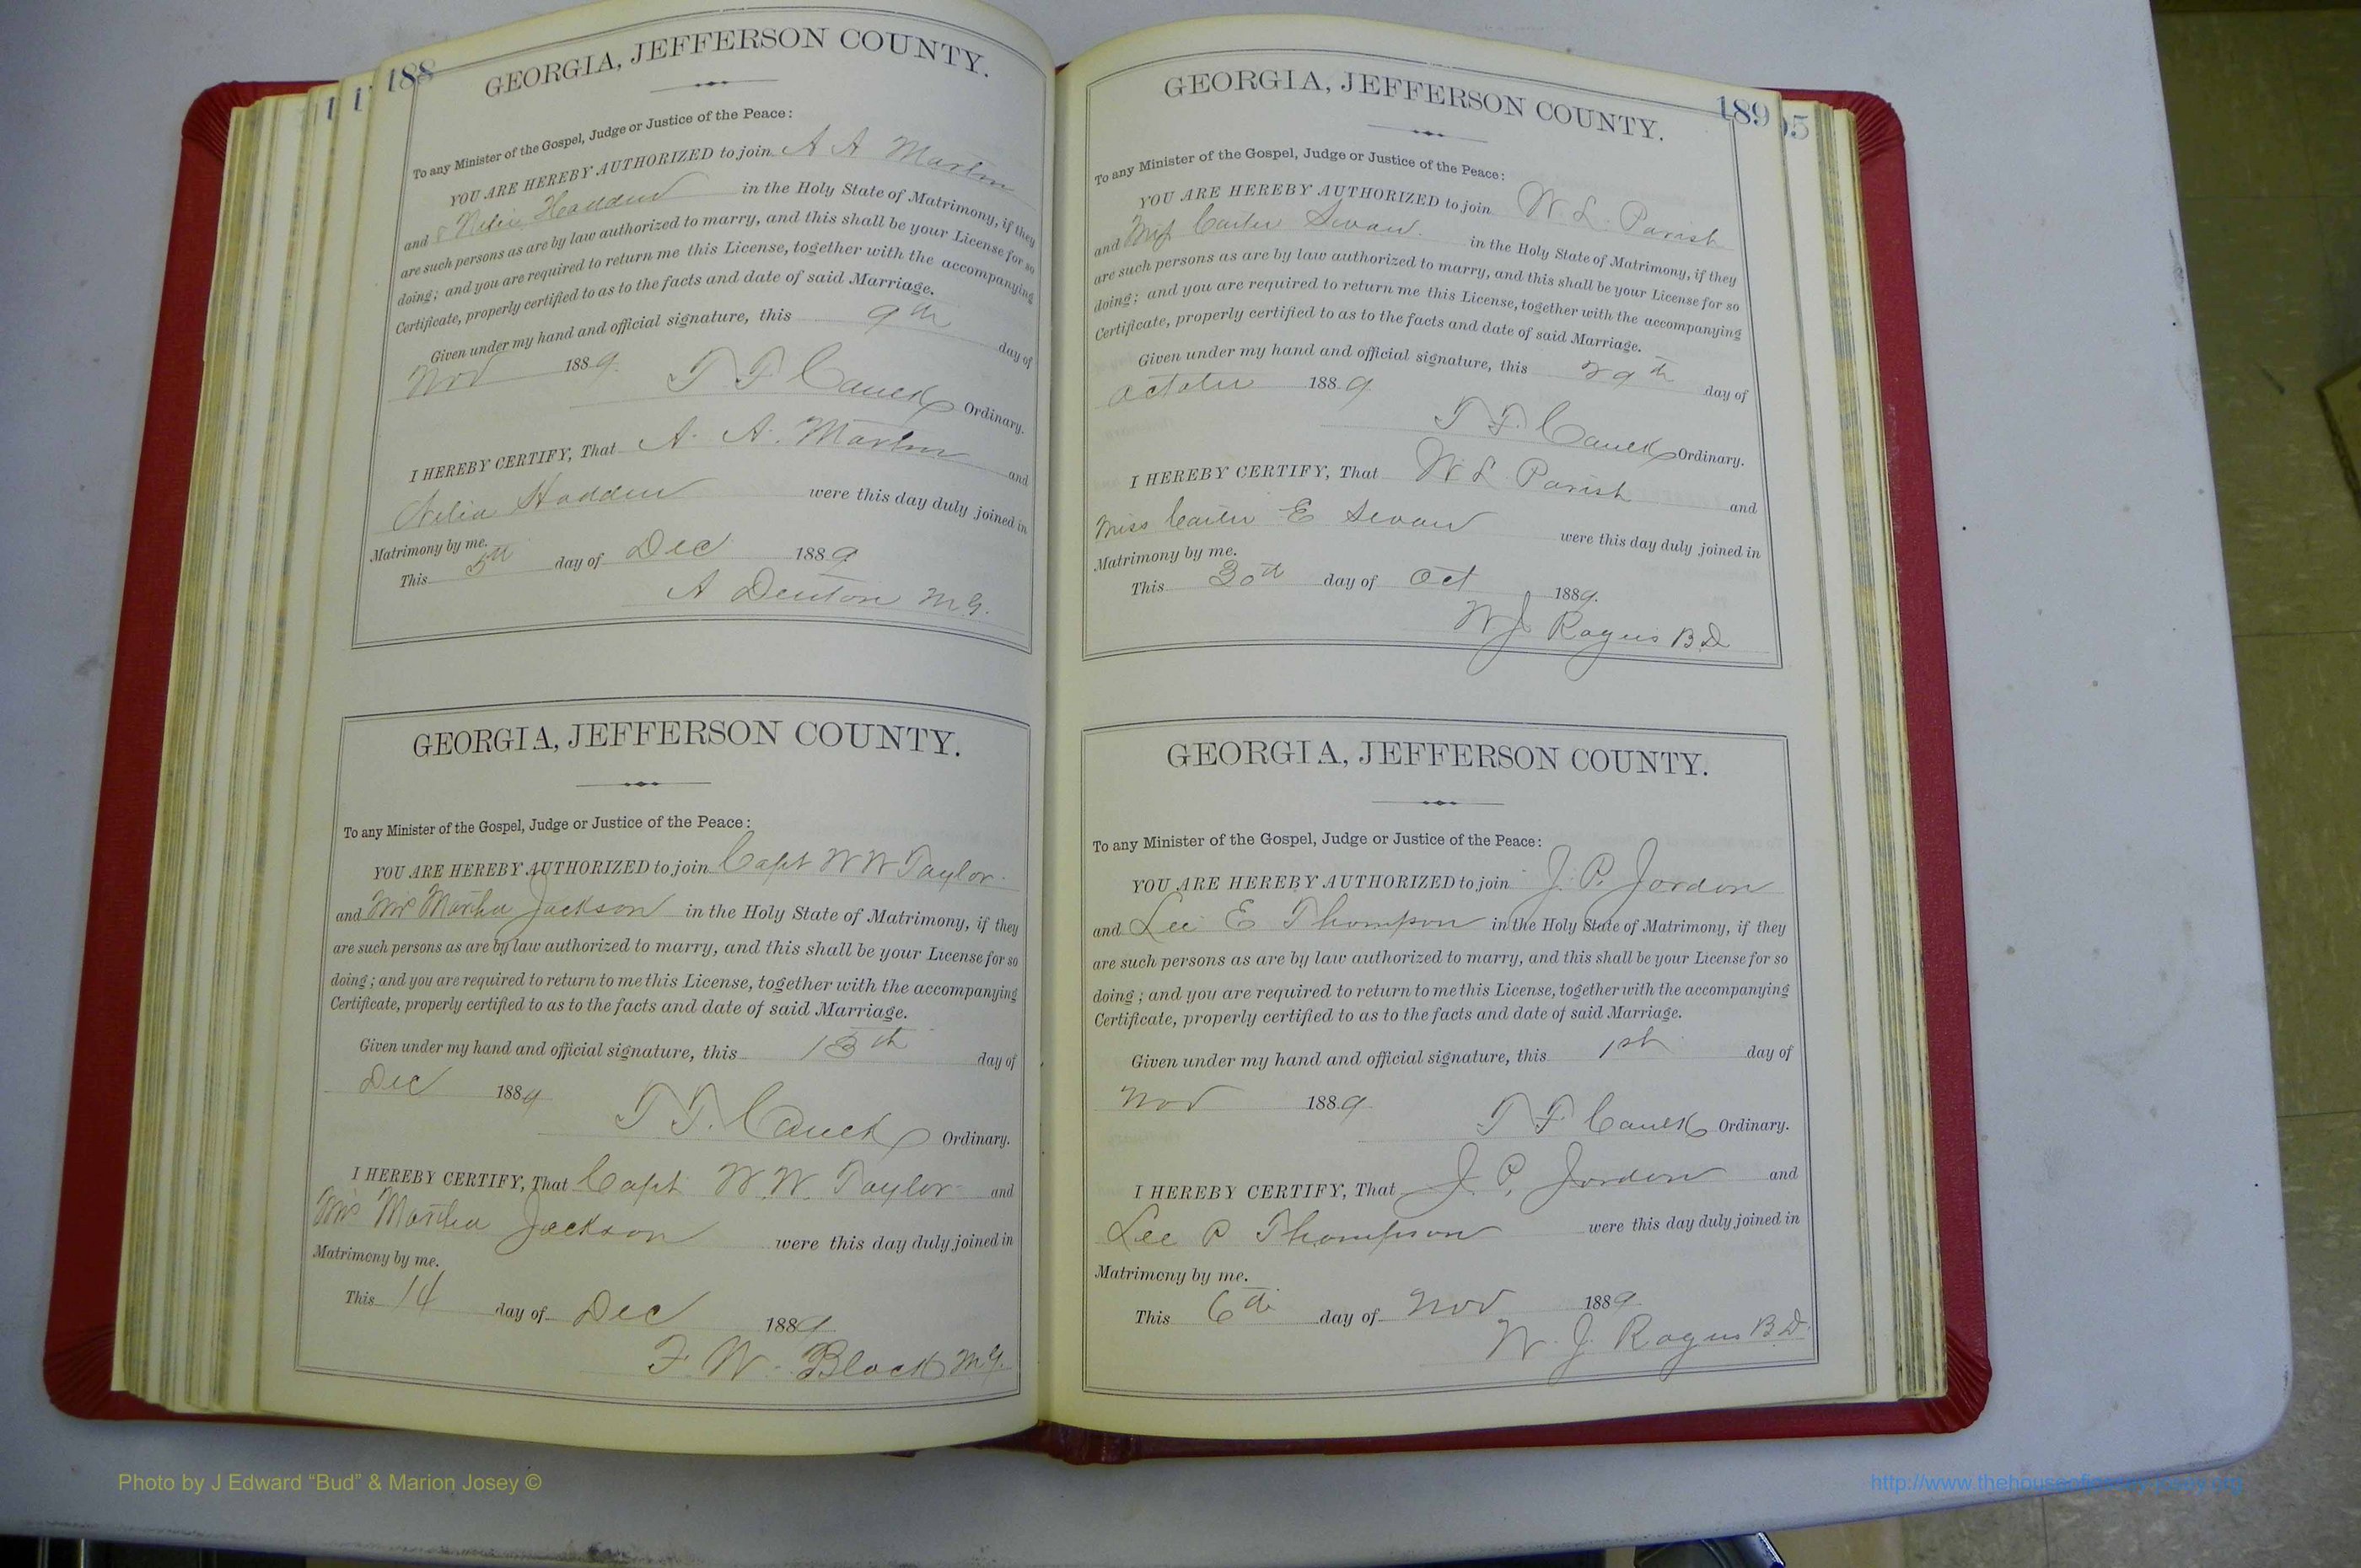 188
GEORGIA, JEFFERSON COUNTY.
To any Minister of the Gospel, Judge or Justice of the Peace:
YOU ARE HEREBY AUTHORIZED to join A A Martin
and Nelia Hadden in the Holy State of Matrimony, if they
are such persons as are by law authorized to marry, and this shall be your License for so
doing; and you are required to return me this License, together with the accompanying
Certificate, properly certified to as to the facts and date of said Marriage.
Given under my hand and official signature, this 9th day of
Nov 1889
T F Caulk Ordinary.
I HEREBY CERTIFY, That A. A. Martin and
Nelia Hadden were this day duly joined in
Matrimony by me.
This 5th day of Dec 1889
A Denton M.G.
GEORGIA, JEFFERSON COUNTY.
To any Minister of the Gospel, Judge or Justice of the Peace:
YOU ARE HEREBY AUTHORIZED to join Capt W W Taylor
and Mrs Martha Jackson in the Holy State of Matrimony, if they
are such persons as are by law authorized to marry, and this shall be your License for so
doing; and you are required to return to me this License, together with the accompanying
Certificate, properly certified to as to the facts and date of said Marriage.
Given under my hand and official signature, this 13th day of
Dec 1889
T F. Caulk Ordinary.
I HEREBY CERTIFY, That Capt W. W. Taylor and
Mrs Martha Jackson were this day duly joined in
Matrimony by me.
This 14 day of Dec 1889
F. W. Block M.G.
189
95
GEORGIA, JEFFERSON COUNTY.
To any Minister of the Gospel, Judge or Justice of the Peace:
YOU ARE HEREBY AUTHORIZED to join W. L. Parish
and Miss Swan. in the Holy State of Matrimony, if they
are such persons as are by law authorized to marry, and this shall be your License for so
doing; and you are required to return me this License, together with the accompanying
Certificate, properly certified to as to the facts and date of said Marriage.
Given under my hand and official signature, this 29th day of
October 1889
T F. Caulk Ordinary.
I HEREBY CERTIFY, That W L Parish and
Miss E Swan were this day duly joined in
Matrimony by me.
This 30th day of Oct 1889.
W J Rogers B.D
GEORGIA, JEFFERSON COUNTY.
To any Minister of the Gospel, Judge or Justice of the Peace:
YOU ARE HEREBY AUTHORIZED to join J. P. Jordon
and Lee E Thompson in the Holy State of Matrimony, if they
are such persons as are by law authorized to marry, and this shall be your License for so
doing; and you are required to return to me this License, together with the accompanying
Certificate, properly certified to as to the facts and date of said Marriage.
Given under my hand and official signature, this 1st day of
Nov 1889
T F Caulk Ordinary.
I HEREBY CERTIFY, That J. P. Jordon and
Lee P Thompson were this day duly joined in
Matrimony by me.
This 6th day of Nov 1889
W. J. Rogers B.D.
Photo by J Edward “Bud” & Marion Josey ©